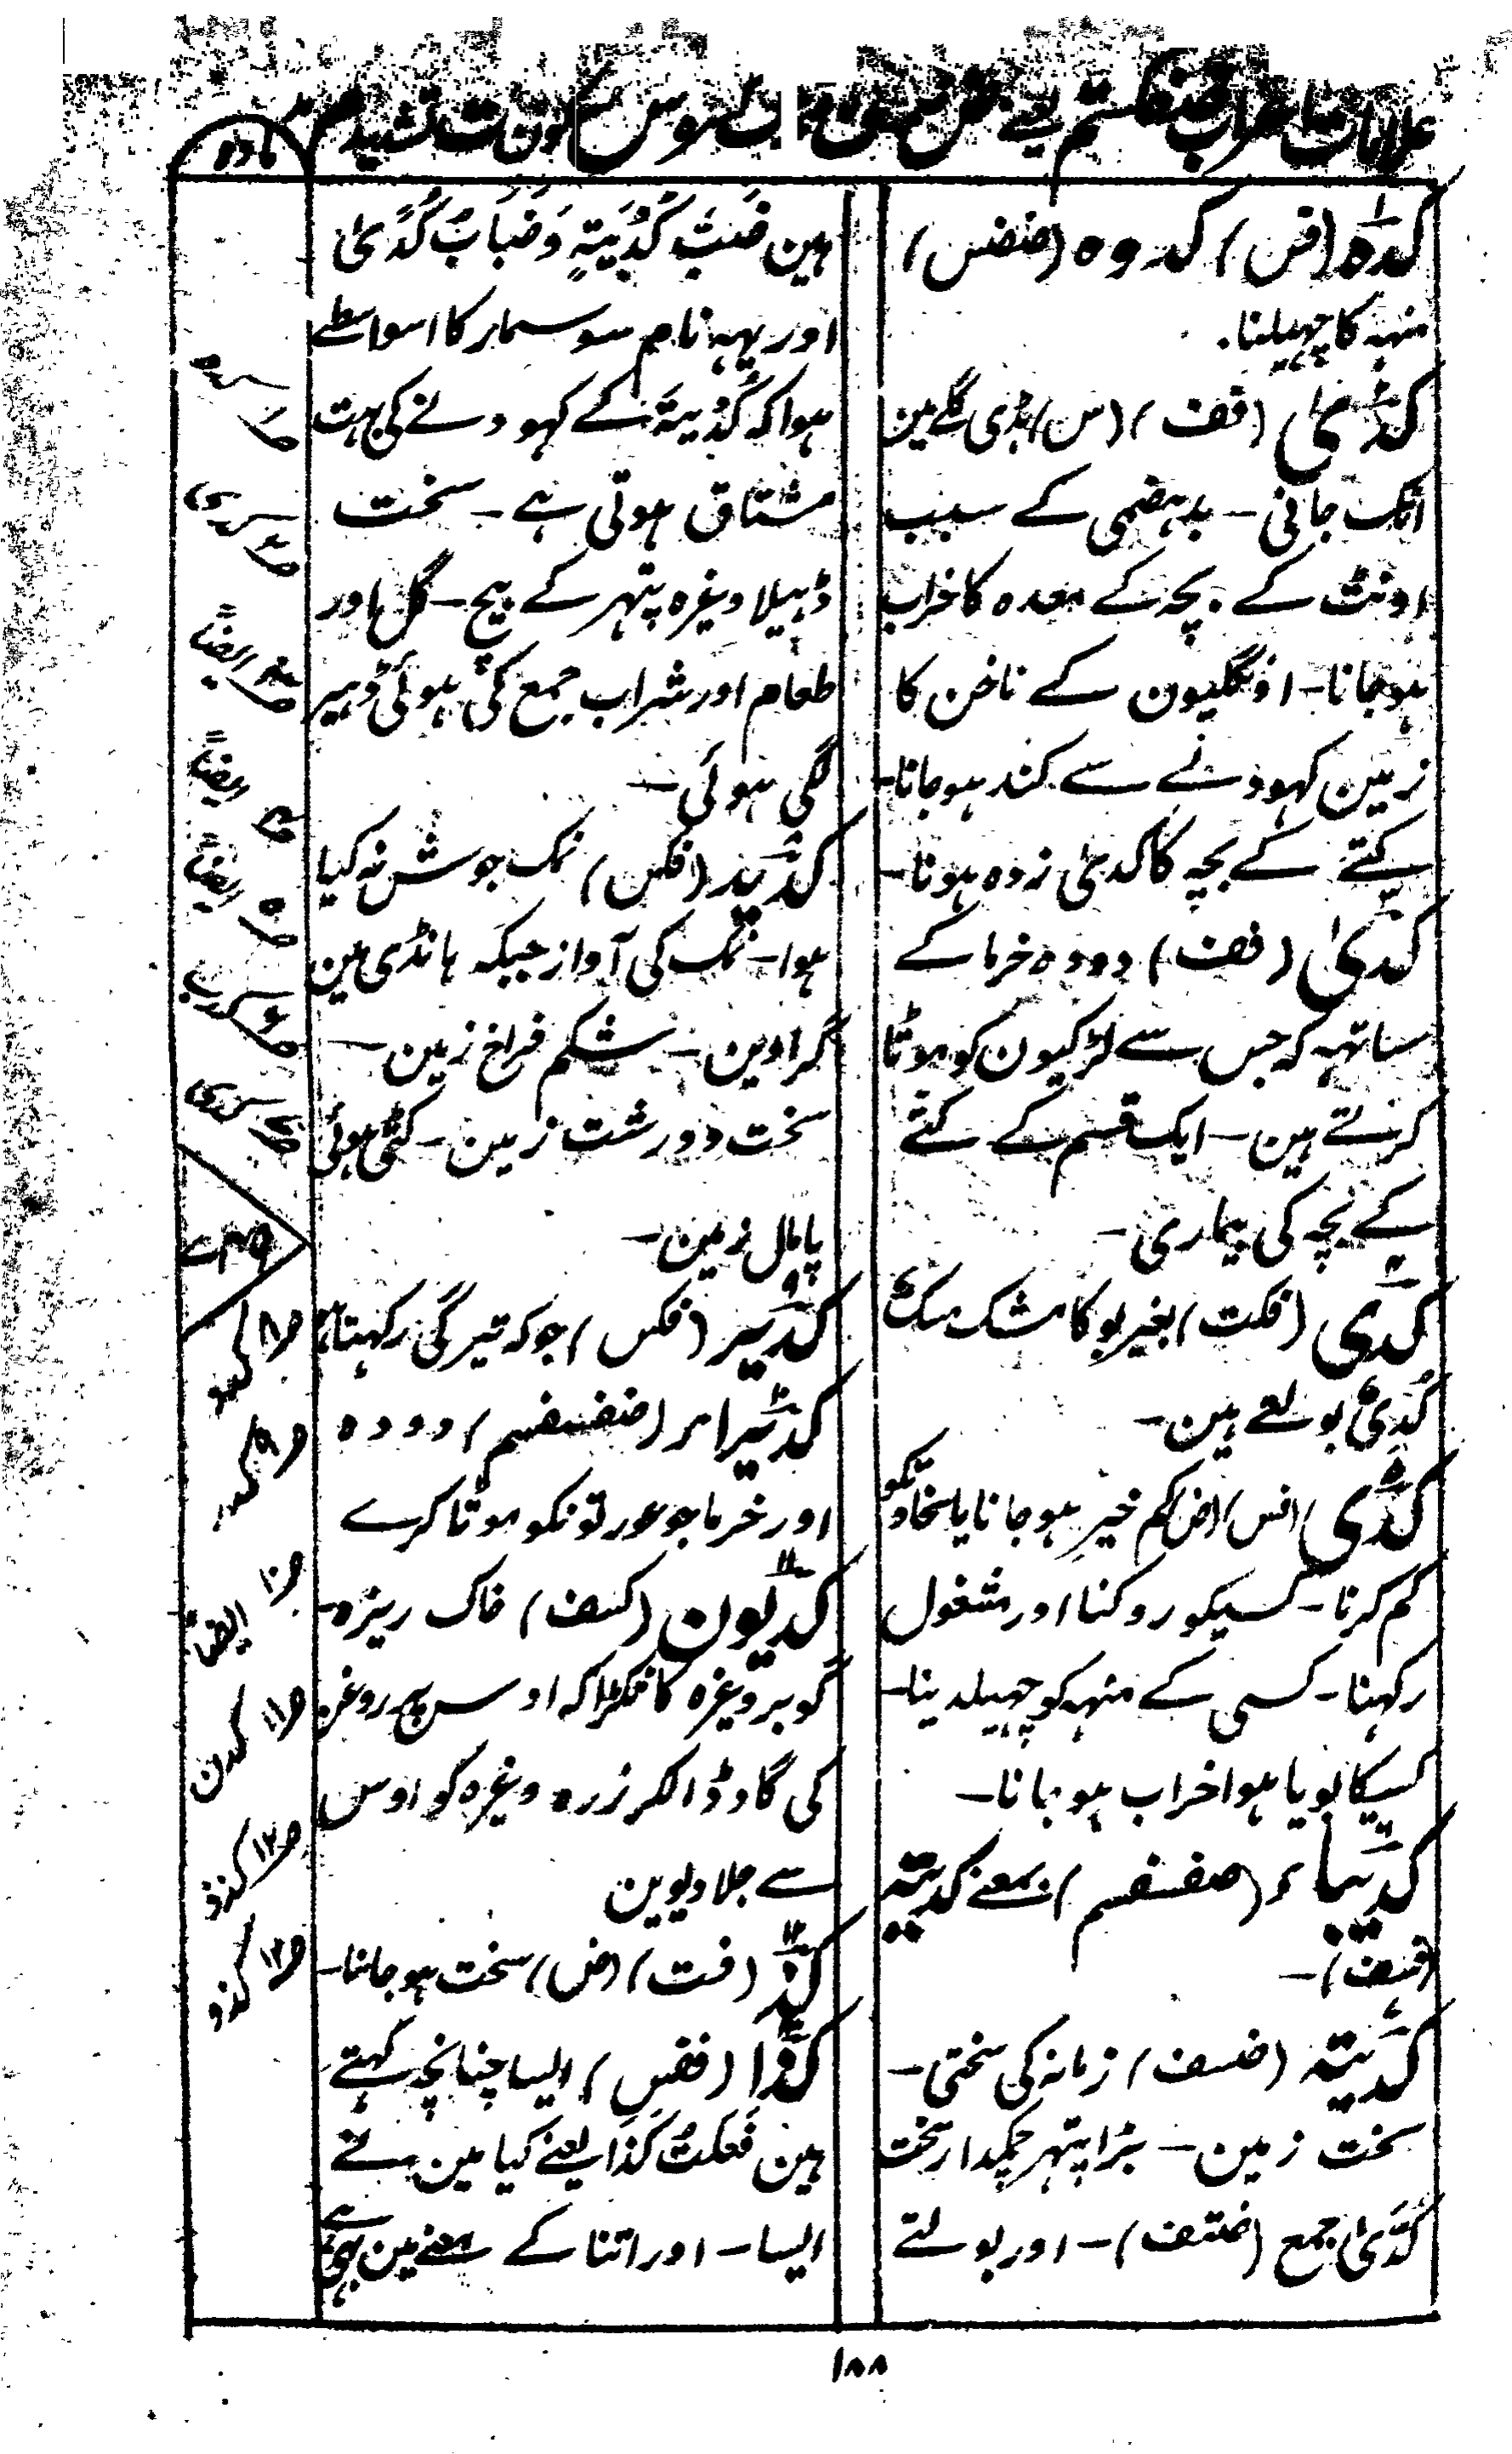 مادہ
کدہ (فس) کدوہ (ضضس)
منہہ کا چہیلنا۔
کدی (فف) (س) ہڈی گلے مین
اٹک جانی – بدہضمی کے سبب
اونٹ کے بچہ کے معدہ کا خراب
ہوجانا – اونگلیون کے ناخن کا
زمین کہودنے سے کند ہوجانا –
کتے کے بچہ کا کدی زدہ ہونا –
کدیٰ (فف) دودہ خرما کے
ساتہہ کہ جس سے لڑکیون کو موٹا
کرتے ہین – ایک قسم کے کتے
کے بچہ کی بیماری –
کدی (فکت) بغیر بو کا مشک مسکٌ
کدیٌ بولتے ہین –
کدی (فس) (ض) کم خیر ہوجانا یا سخاوتکو
کم کرنا – کسیکو روکنا اور مشغول
رکہنا – کسی کے منہہ کو چہیلدینا –
کسیکا بویا ہوا خراب ہوجانا –
کدیاء (ضفسفسم) بمعنے کدیتہ
(فسف) –
کدیتہ (ضسف) زمانہ کی سختی –
سخت زمین – بڑا پتہر چمکدار سخت
کُدیٰ جمع (ضتف) – اور بولتے
ہین ضَبُّ کُدْیَۃٍ وَضَبَابُ کُدًیٰ
اور یہہ نام سوسمار کا اسواسطے
ہوا کہ کُدْیَۃ کے کہودنے کی بہت
مشتاق ہوتی ہے – سخت
ڈہیلا وغیرہ پتہر کے بیچ – گل اور
طعام اور شراب جمع کی ہوئی ڈہیر
لگی ہوئی –
کدید (فکس) نمک جوش نہ کیا
ہوا – نمک کی آواز جبکہ ہانڈی مین
گراوین – شکم فراخ زمین –
سخت و درشت زمین – کٹی ہوئی
پامال زمین –
کدیر (فکس) جو کہ تیرگی رکہتا ہے
کدیراء (ضفسفسم) دودہ
اور خرما جو عورتونکو موٹا کرے
کدیون (کسف) خاک ریزہ –
گوبر وغیرہ کا ٹکڑا کہ اوس پر روغن
کی گاد ڈالکر زرہ وغیرہ کو اوس
سے جلا دیوین
کذ (فت) (ض) سخت ہوجانا –
کذا (ففس) ایسا چنانچہ کہتے
ہین فَعَلتُ کَذَا یعنے کیا مین نے
ایسا – اور اتنا کے معنے مین بہی ہے
ایضاً
ایضاً
ایضاً
۸ کدو
۹ کدر
۱۰ ایضاً
۱۱ کدن
۱۲ کذذ
۱۳ کذو
۱۸۸